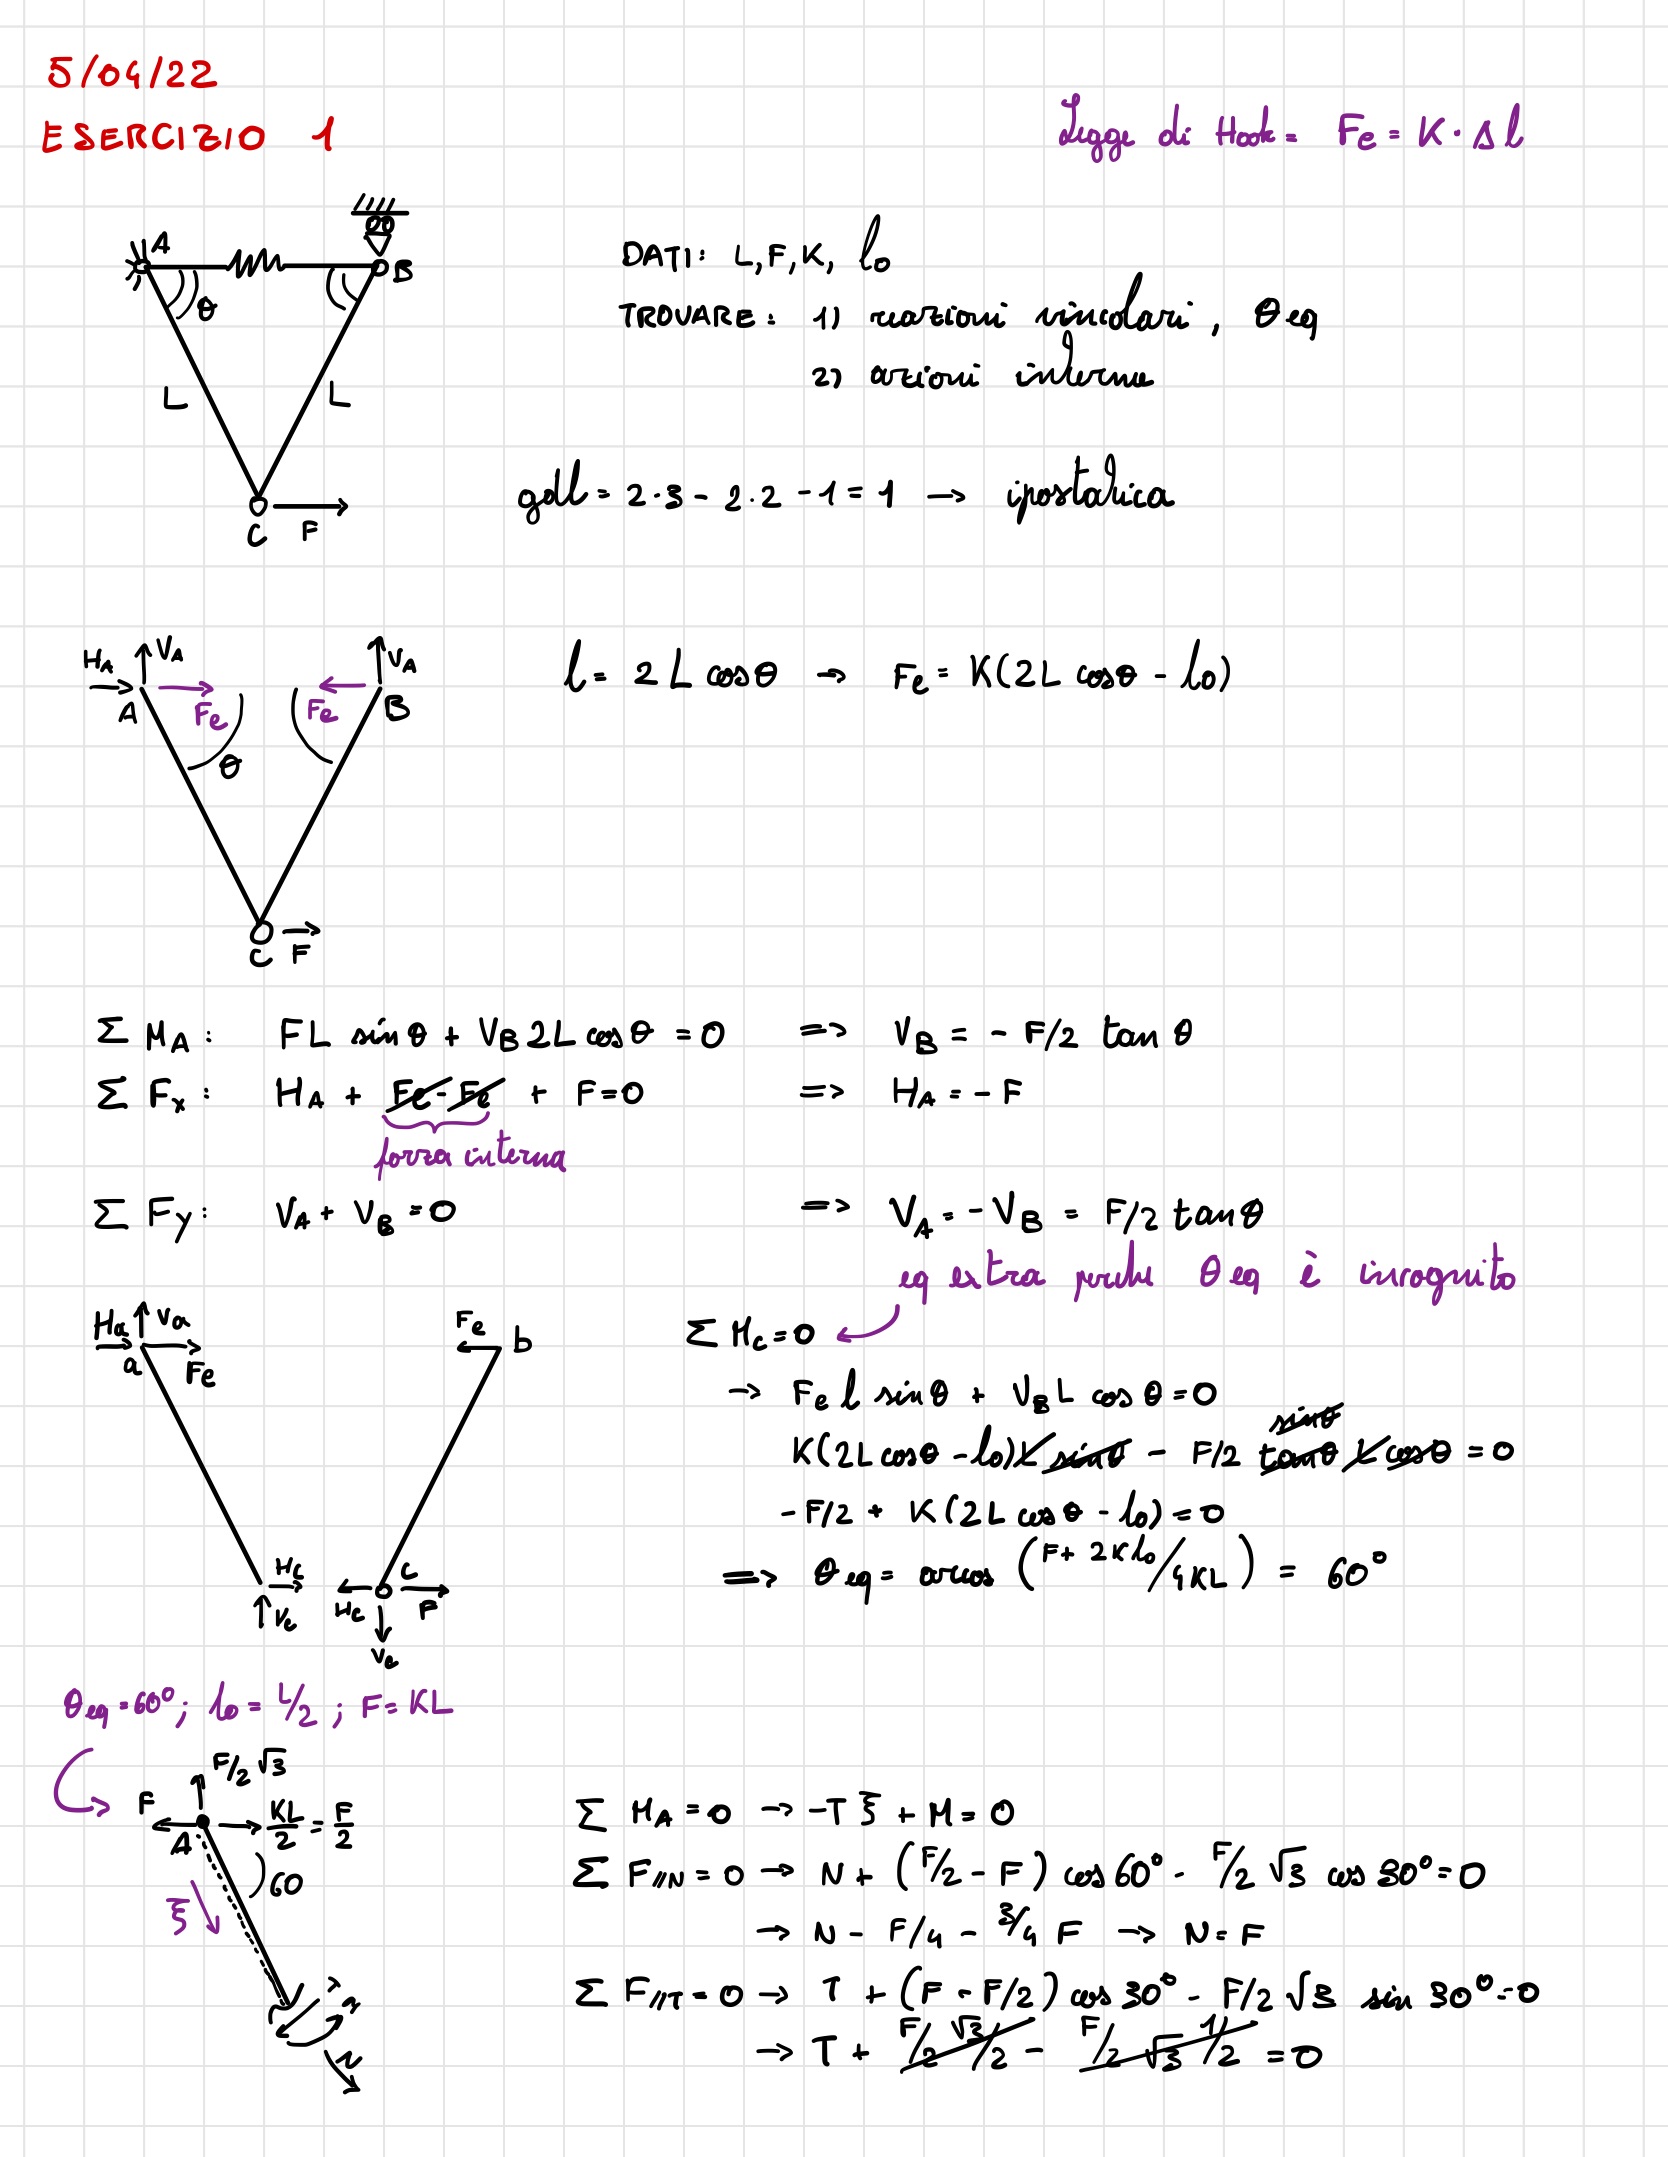 5/04/22
ESERCIZIO 1
Legge di Hook = Fe = K · Δl
A
B
θ
L
L
C
F
DATI: L, F, K, l₀
TROVARE: 1) reazioni vincolari, θeq
2) azioni interne
gdl = 2·3 - 2·2 - 1 = 1 → ipostatica
HA VA VA
A Fe Fe B
θ
C F
l = 2L cosθ → Fe = K(2L cosθ - l₀)
Σ MA: FL sinθ + VB 2L cosθ = 0 => VB = - F/2 tanθ
Σ Fx: HA + Fe - Fe + F = 0 => HA = - F
forza interna
Σ Fy: VA + VB = 0 => VA = - VB = F/2 tanθ
eq extra perche θeq è incognito
Ha Va
a Fe
Fe b
Hc
Vc
C
Hc F
Vc
Σ Mc = 0
→ Fe l sinθ + VB L cosθ = 0
sinθ
K(2L cosθ - l₀) L sinθ - F/2 tanθ L cosθ = 0
- F/2 + K(2L cosθ - l₀) = 0
=> θeq = arcos (F + 2Kl₀/4KL) = 60°
θeq = 60°; l₀ = L/2; F = KL
F/2 √3
F KL/2 = F/2
A
60
ξ
T
N
Σ MA = 0 → -Tξ + M = 0
Σ F//N = 0 → N + (F/2 - F) cos 60° - F/2 √3 cos 30° = 0
→ N - F/4 - 3/4 F → N = F
Σ F//T = 0 → T + (F - F/2) cos 30° - F/2 √3 sin 30° = 0
→ T + F/2 √3/2 - F/2 √3 1/2 = 0